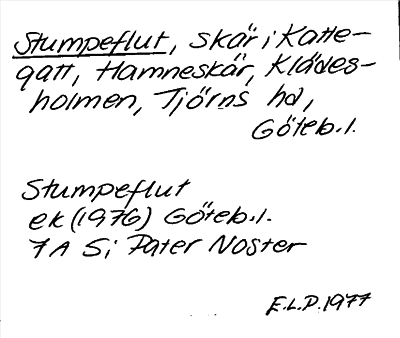 Stumpeflut, skär i Katte-
gatt, Hamneskär, Klädes-
holmen, Tjörns hd,
Göteb.l.
Stumpeflut
ek (1976) Göteb.l.
7A Si Pater Noster
E.L.P. 1977